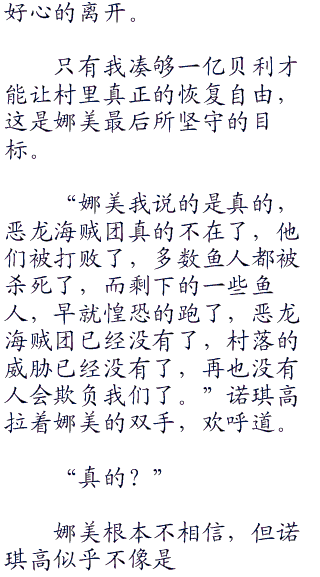 好心的离开。
只有我凑够一亿贝利才
能让村里真正的恢复自由，
这是娜美最后所坚守的目
标。
“娜美我说的是真的，
恶龙海贼团真的不在了，他
们被打败了，多数鱼人都被
杀死了，而剩下的一些鱼
人，早就惶恐的跑了，恶龙
海贼团已经没有了，村落的
威胁已经没有了，再也没有
人会欺负我们了。”诺琪高
拉着娜美的双手，欢呼道。
“真的？”
娜美根本不相信，但诺
琪高似乎不像是